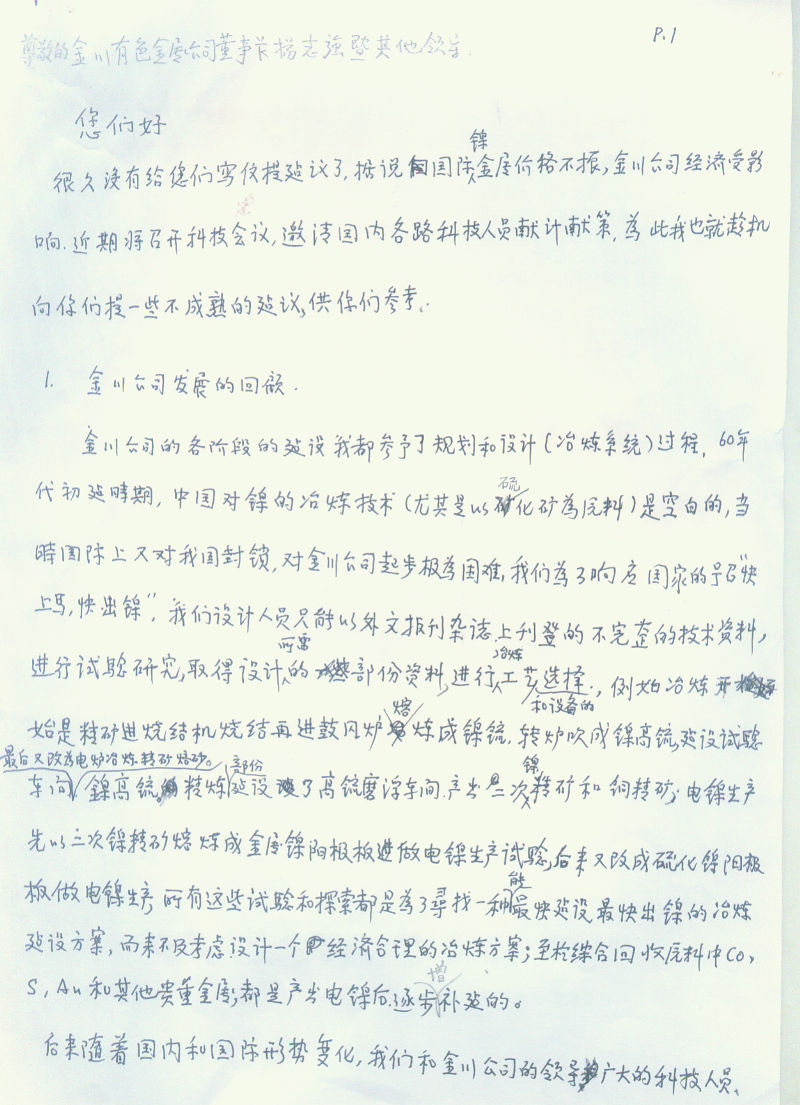 P.1
尊敬的金川有色金属公司董事长杨志强暨其他领导.
您们好
很久没有给您们写信提建议了,据说国际镍金属价格不振,金川公司经济受影
响.近期将召开科技会议,邀请国内各路科技人员献计献策,為此我也就趁机
向你们提一些不成熟的建议,供你们参考.
1. 金川公司发展的回顾.
金川公司的各阶段的建设我都参予了规划和设计(冶炼系统)过程,60年
代初建時期,中国对镍的冶炼技术(尤其是以硫化矿為原料)是空白的,当
時国际上又对我国封锁,对金川公司起步极為困难,我们為了响应国家的号召“快
上马,快出镍”,我们设计人员只能以外文报刊杂誌上刊登的不完整的技术资料,
进行试验研究,取得设计所需的部份资料,进行冶炼工艺和设备的选择.,例如冶炼开
始是精矿进烧结机烧结再进鼓风炉熔炼成镍锍.转炉吹成镍高锍,建设试验
车间,最后又改為电炉冶炼精矿焙砂.镍高锍精炼部份建设了高锍磨浮车间.产出二次镍精矿和铜精矿;电镍生产
先以二次镍精矿熔炼成金属镍阳极板进做电镍生产试验,后来又改成硫化镍阳极
板做电镍生产,所有这些试验和探索都是為了寻找一种能最快建设最快出镍的冶炼
建设方案,而来不及考虑设计一个经济合理的冶炼方案;至於综合回收原料中Co,
S,Au和其他贵重金属,都是产出电镍后逐步增补建的。
后来随着国内和国际形势变化,我们和金川公司的领导广大的科技人员、